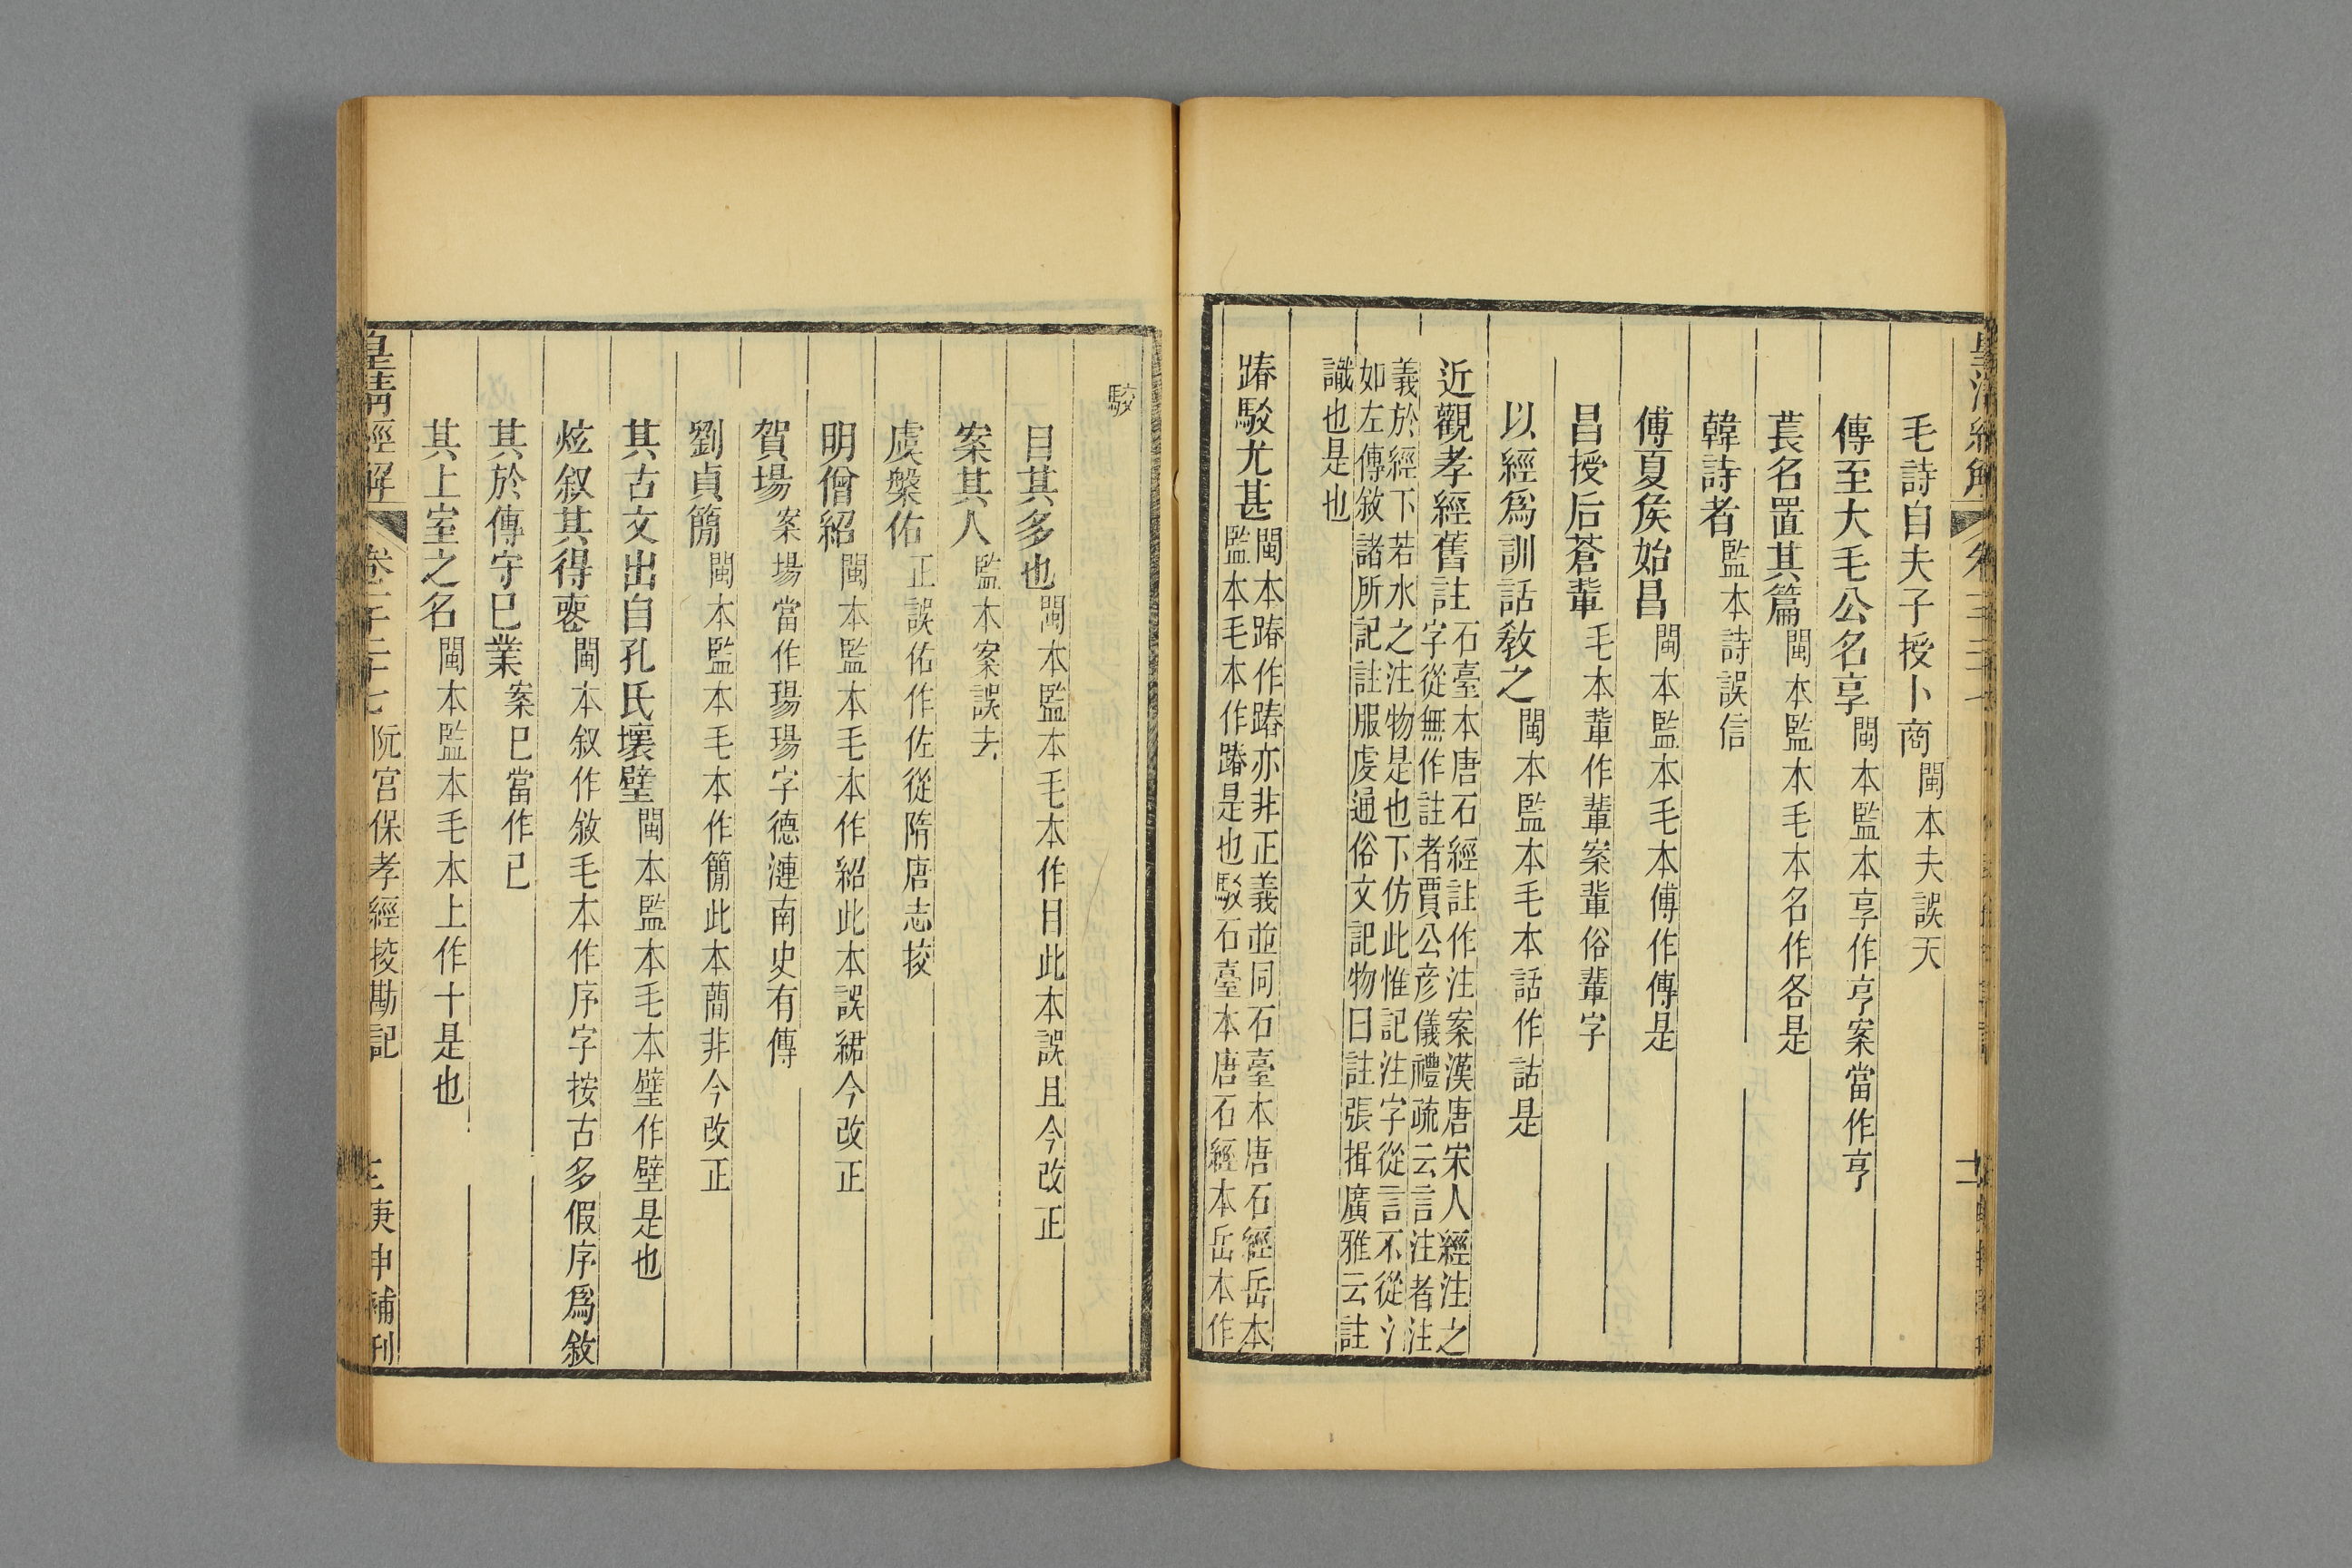 毛詩自夫子授卜商閩本夫誤天
傳至大毛公名亨閩本監本亨作亨案當作亨
萇名置其篇閩本監本毛本名作各是
韓詩者監本詩誤信
傅夏侯始昌閩本監本毛本傅作傳是
昌授后蒼軰毛本軰作輩案軰俗輩字
以經爲訓話教之閩本監本毛本話作詁是
近觀孝經舊註石臺本唐石經註作注案漢唐宋人經注之
字從無作註者賈公彦儀禮疏云言注者注
義於經下若水之注物是也下仿此惟記注字從言不從氵
如左傳敘諸所記註服虔通俗文記物曰註張揖廣雅云註
識也是也
踳駁尤甚閩本踳作蹖亦非正義並同石臺本唐石經岳本
監本毛本作踳是也駁石臺本唐石經本岳本作
駮
目其多也閩本監本毛本作目此本誤且今改正
案其人監本案誤去
虞槃佑正誤佑作佐從隋唐志挍
明僧紹閩本監本毛本作紹此本誤裙今改正
賀場案場當作瑒瑒字德漣南史有傳
劉貞簡閩本監本毛本作簡此本蕑非今改正
其古文出自孔氏壞壁閩本監本毛本壁作壁是也
炫叙其得喪閩本叙作敘毛本作序字按古多假序爲敘
其於傳守巳業案巳當作已
其上室之名閩本監本毛本上作十是也
皇清經解 卷一千二十七 阮宮保孝經挍勘記 庚申補刊